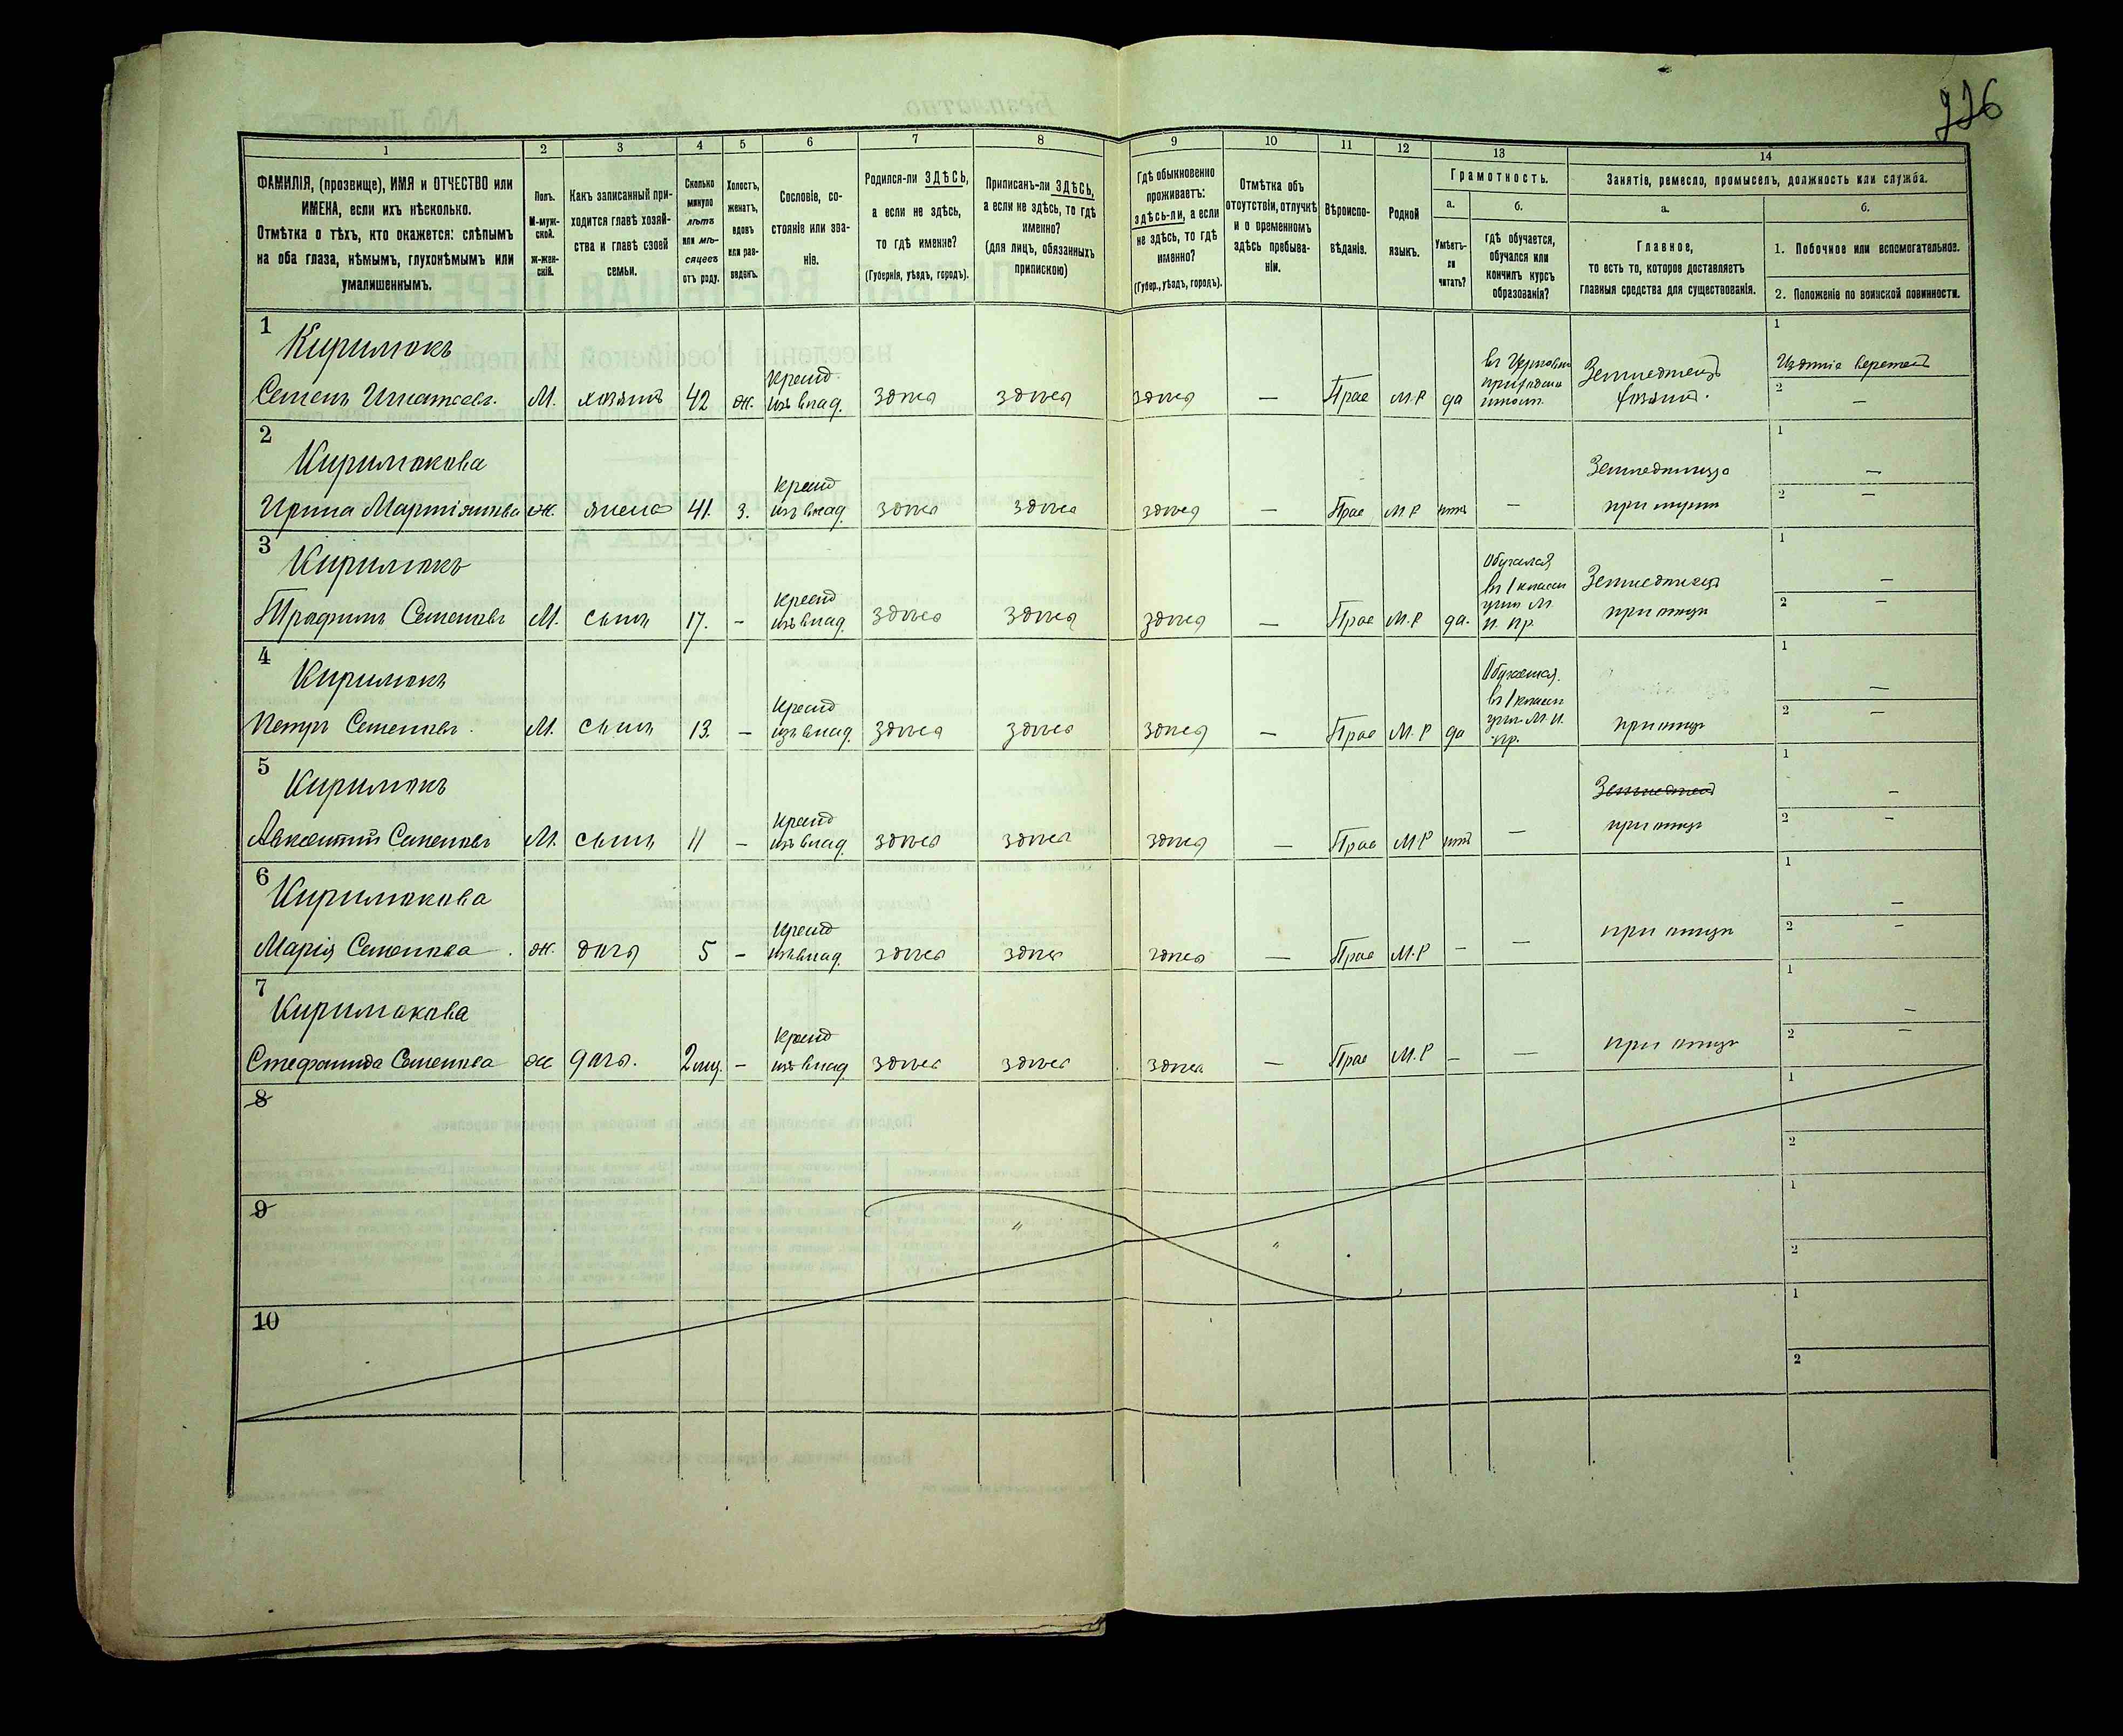 926
1 2 3 4 5 6 7 8 9 10 11 12 13 14
ФАМИЛІЯ, (прозвище), ИМЯ и ОТЧЕСТВО или
ИМЕНА, если ихъ нѣсколько.
Отмѣтка о тѣхъ, кто окажется: слѣпымъ
на оба глаза, нѣмымъ, глухонѣмымъ или
умалишеннымъ.
Полъ.
М-муж-
ской.
ж-жен-
скій.
Какъ записанный при-
ходится главѣ хозяй-
ства и главѣ своей
семьи.
Сколько
минуло
лѣтъ
или мѣ-
сяцевъ
отъ роду.
Холостъ,
женатъ,
вдовъ
или раз-
веденъ.
Сословіе, со-
стояніе или зва-
ніе.
Родился-ли ЗДѢСЬ,
а если не здѣсь,
то гдѣ именно?
(Губернія, уѣздъ, городъ).
Приписанъ-ли ЗДѢСЬ,
а если не здѣсь, то гдѣ
именно?
(для лицъ, обязанныхъ
припискою)
Гдѣ обыкновенно
проживаетъ:
здѣсь-ли, а если
не здѣсь, то гдѣ
именно?
(Губер., уѣздъ, городъ).
Отмѣтка объ
отсутствіи, отлучкѣ
и о временномъ
здѣсь пребыва-
ніи.
Вѣроиспо-
вѣданіе.
Родной
языкъ.
Грамотность.
а.
Умѣетъ-
ли
читать?
б.
гдѣ обучается,
обучался или
кончилъ курсъ
образованія?
Занятіе, ремесло, промыселъ, должность или служба.
а.
Главное,
то есть то, которое доставляетъ
главныя средства для существованія.
б.
1. Побочное или вспомогательное.
2. Положеніе по воинской повинности.
1
Кирилюкъ
Семенъ Игнатьевъ. М. хозяинъ 42 ж. Кресн. изъ влад. здѣсь здѣсь здѣсь — Прав М.Р да
Земледѣлецъ
хозяинъ.
2
Кирилюкова
Ирина Мартіянова ж. жена 41. з. Кресн изъ влад. здѣсь здѣсь здѣсь — Прав М.Р нѣтъ —
при мужѣ
3
Кирилюкъ
Трофимъ Семеновъ М. сынъ 17. – Кресн изъ влад. здѣсь здѣсь здѣсь — Прав М.Р да.
Обучался
въ 1 классн
учил М.
Н. Пр.
Земледѣлецъ
при отцѣ
4
Кирилюкъ
Петръ Семеновъ. М. сынъ 13. – Кресн изъ влад. здѣсь здѣсь здѣсь — Прав М.Р да
Обучается
въ 1 классн
учил М. Н.
пр.
при отцѣ
5
Кирилюкъ
Авксентій Семеновъ М. сынъ 11 – Кресн изъ влад. здѣсь здѣсь здѣсь — Прав М.Р нѣтъ —
при отцѣ
6
Кирилюкова
Марія Семенова. ж. дочь 5 – Кресн изъ влад. здѣсь здѣсь здѣсь — Прав М.Р – —
при отцѣ
7
Кирилюкова
Стефанида Семенова ж дочь. 2 мѣс. – Кресн изъ влад. здѣсь здѣсь здѣсь — Прав М.Р – —
при отцѣ
8
9
10